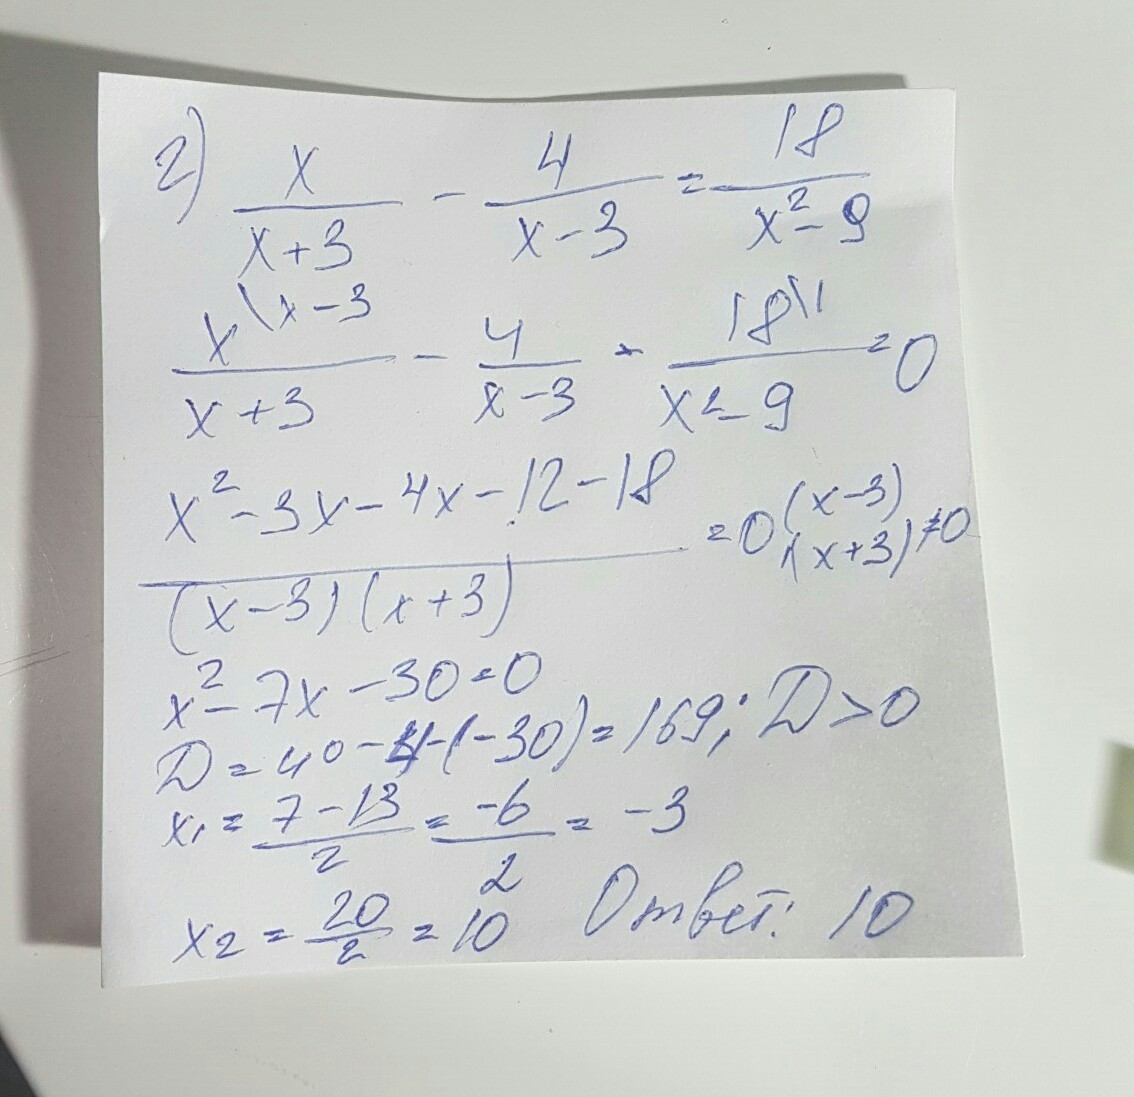 2) x/(x+3) - 4/(x-3) = 18/(x²-9)
x\x-3/(x+3) - 4/(x-3) - 18\1/(x²-9) = 0
(x²-3x-4x-12-18)/((x-3)(x+3)) = 0 (x-3)(x+3)≠0
x²-7x-30=0
D=40-4·(-30)=169; D>0
x₁=(7-13)/2=-6/2=-3
x₂=20/2=10 Ответ: 10